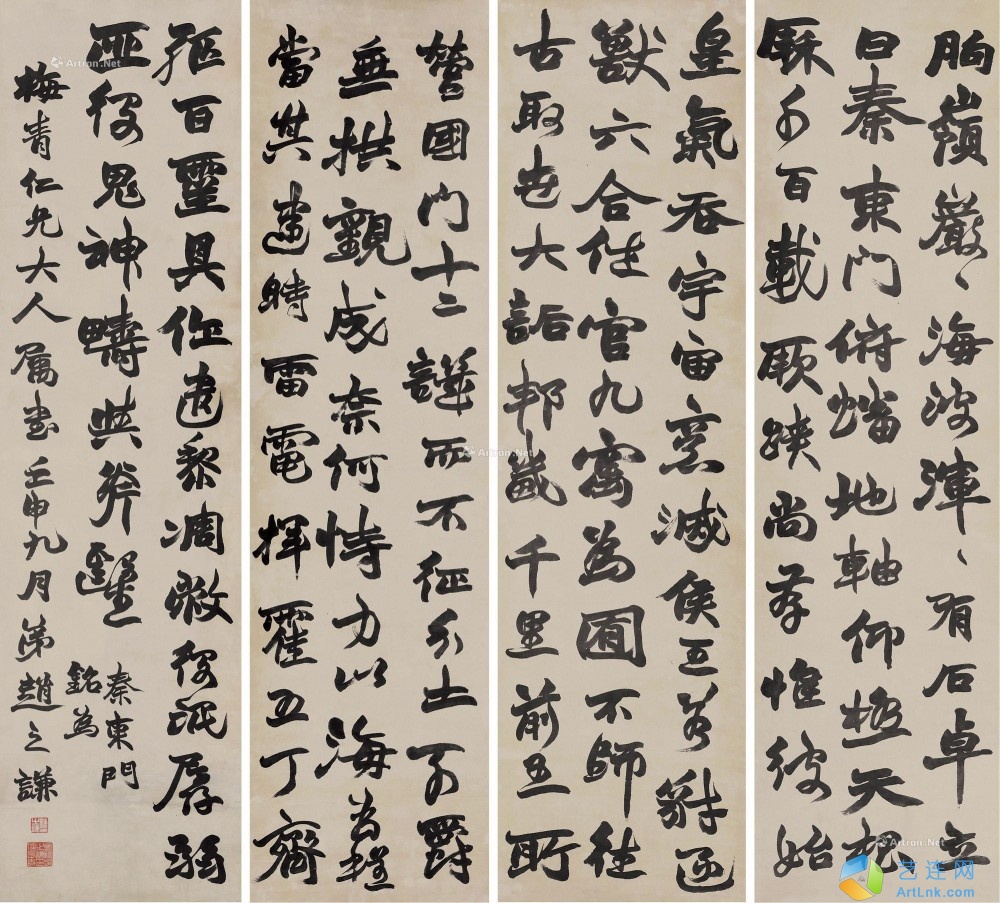 朐嶺巖〻海波渾〻有石卓立
曰秦東門俯蟠地軸仰極天
千百載厥蹟尚存惟彼始
皇氣吞宇宙烹滅侯王若豺逐
獸六合性官九寓為囿不師往
古取世大詬邦畿千里前立所
營國門十二譏而不征分土列爵
垂拱觀成奈何恃力以海為程
當其遣時雷電揮霍五丁齊
百靈具作遺黎凋敝役氓孱弱
亟役鬼神疇與斧鑿
秦東門
銘為
梅青仁兄大人屬書壬申九月弟趙之謙
Artron.Net
Artron.Net
Artron.Net
艺连网
ArtLnk.com